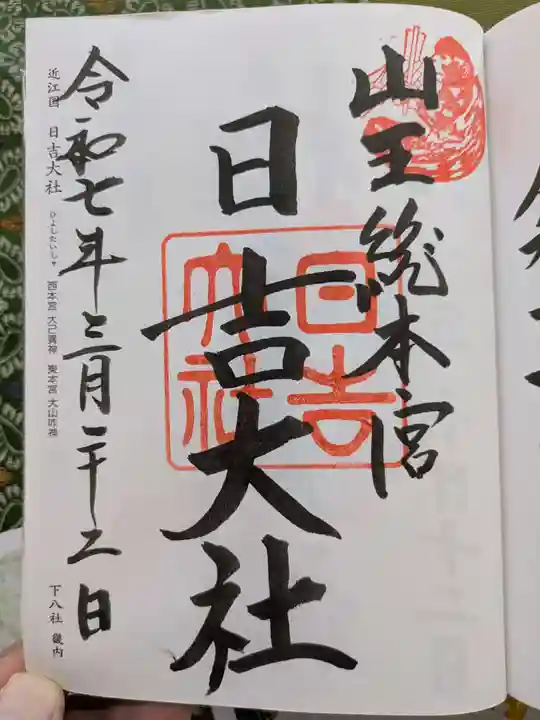 山王総本宮
日吉大社
日吉
大社
令和七年三月二十二日
近江国 日吉大社 ひよしたいしゃ 西本宮 大己貴神 東本宮 大山咋神
下八社 畿内